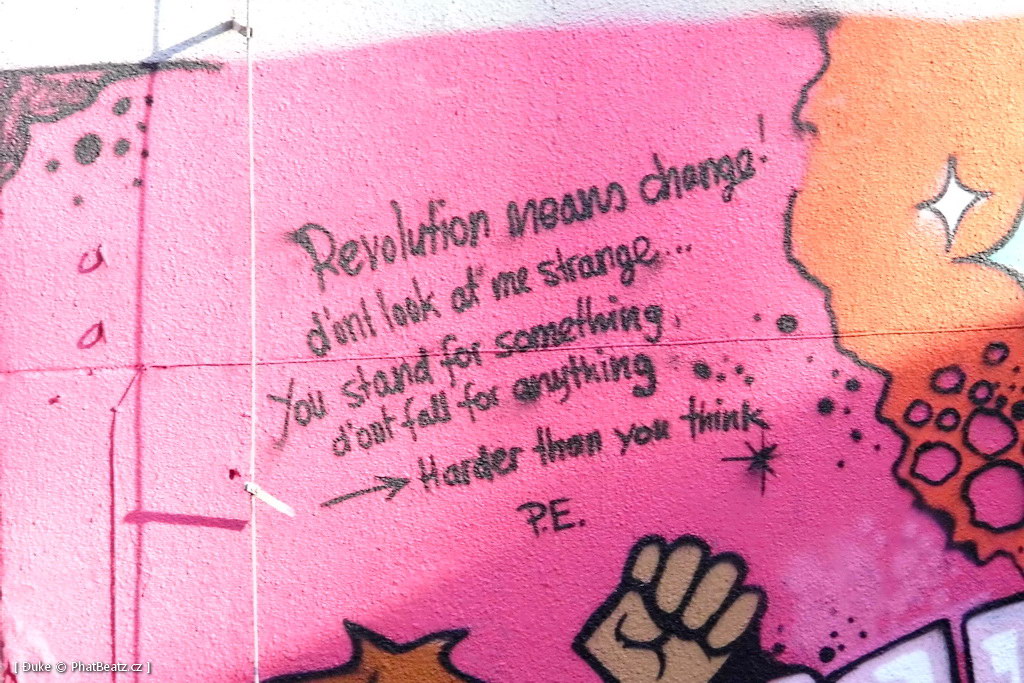 Revolution means change!
d'ont look at me strange...
You stand for something,
d'ont fall for anything
→ Harder than you think
P.E.
[ Duke © PhatBeatz.cz ]